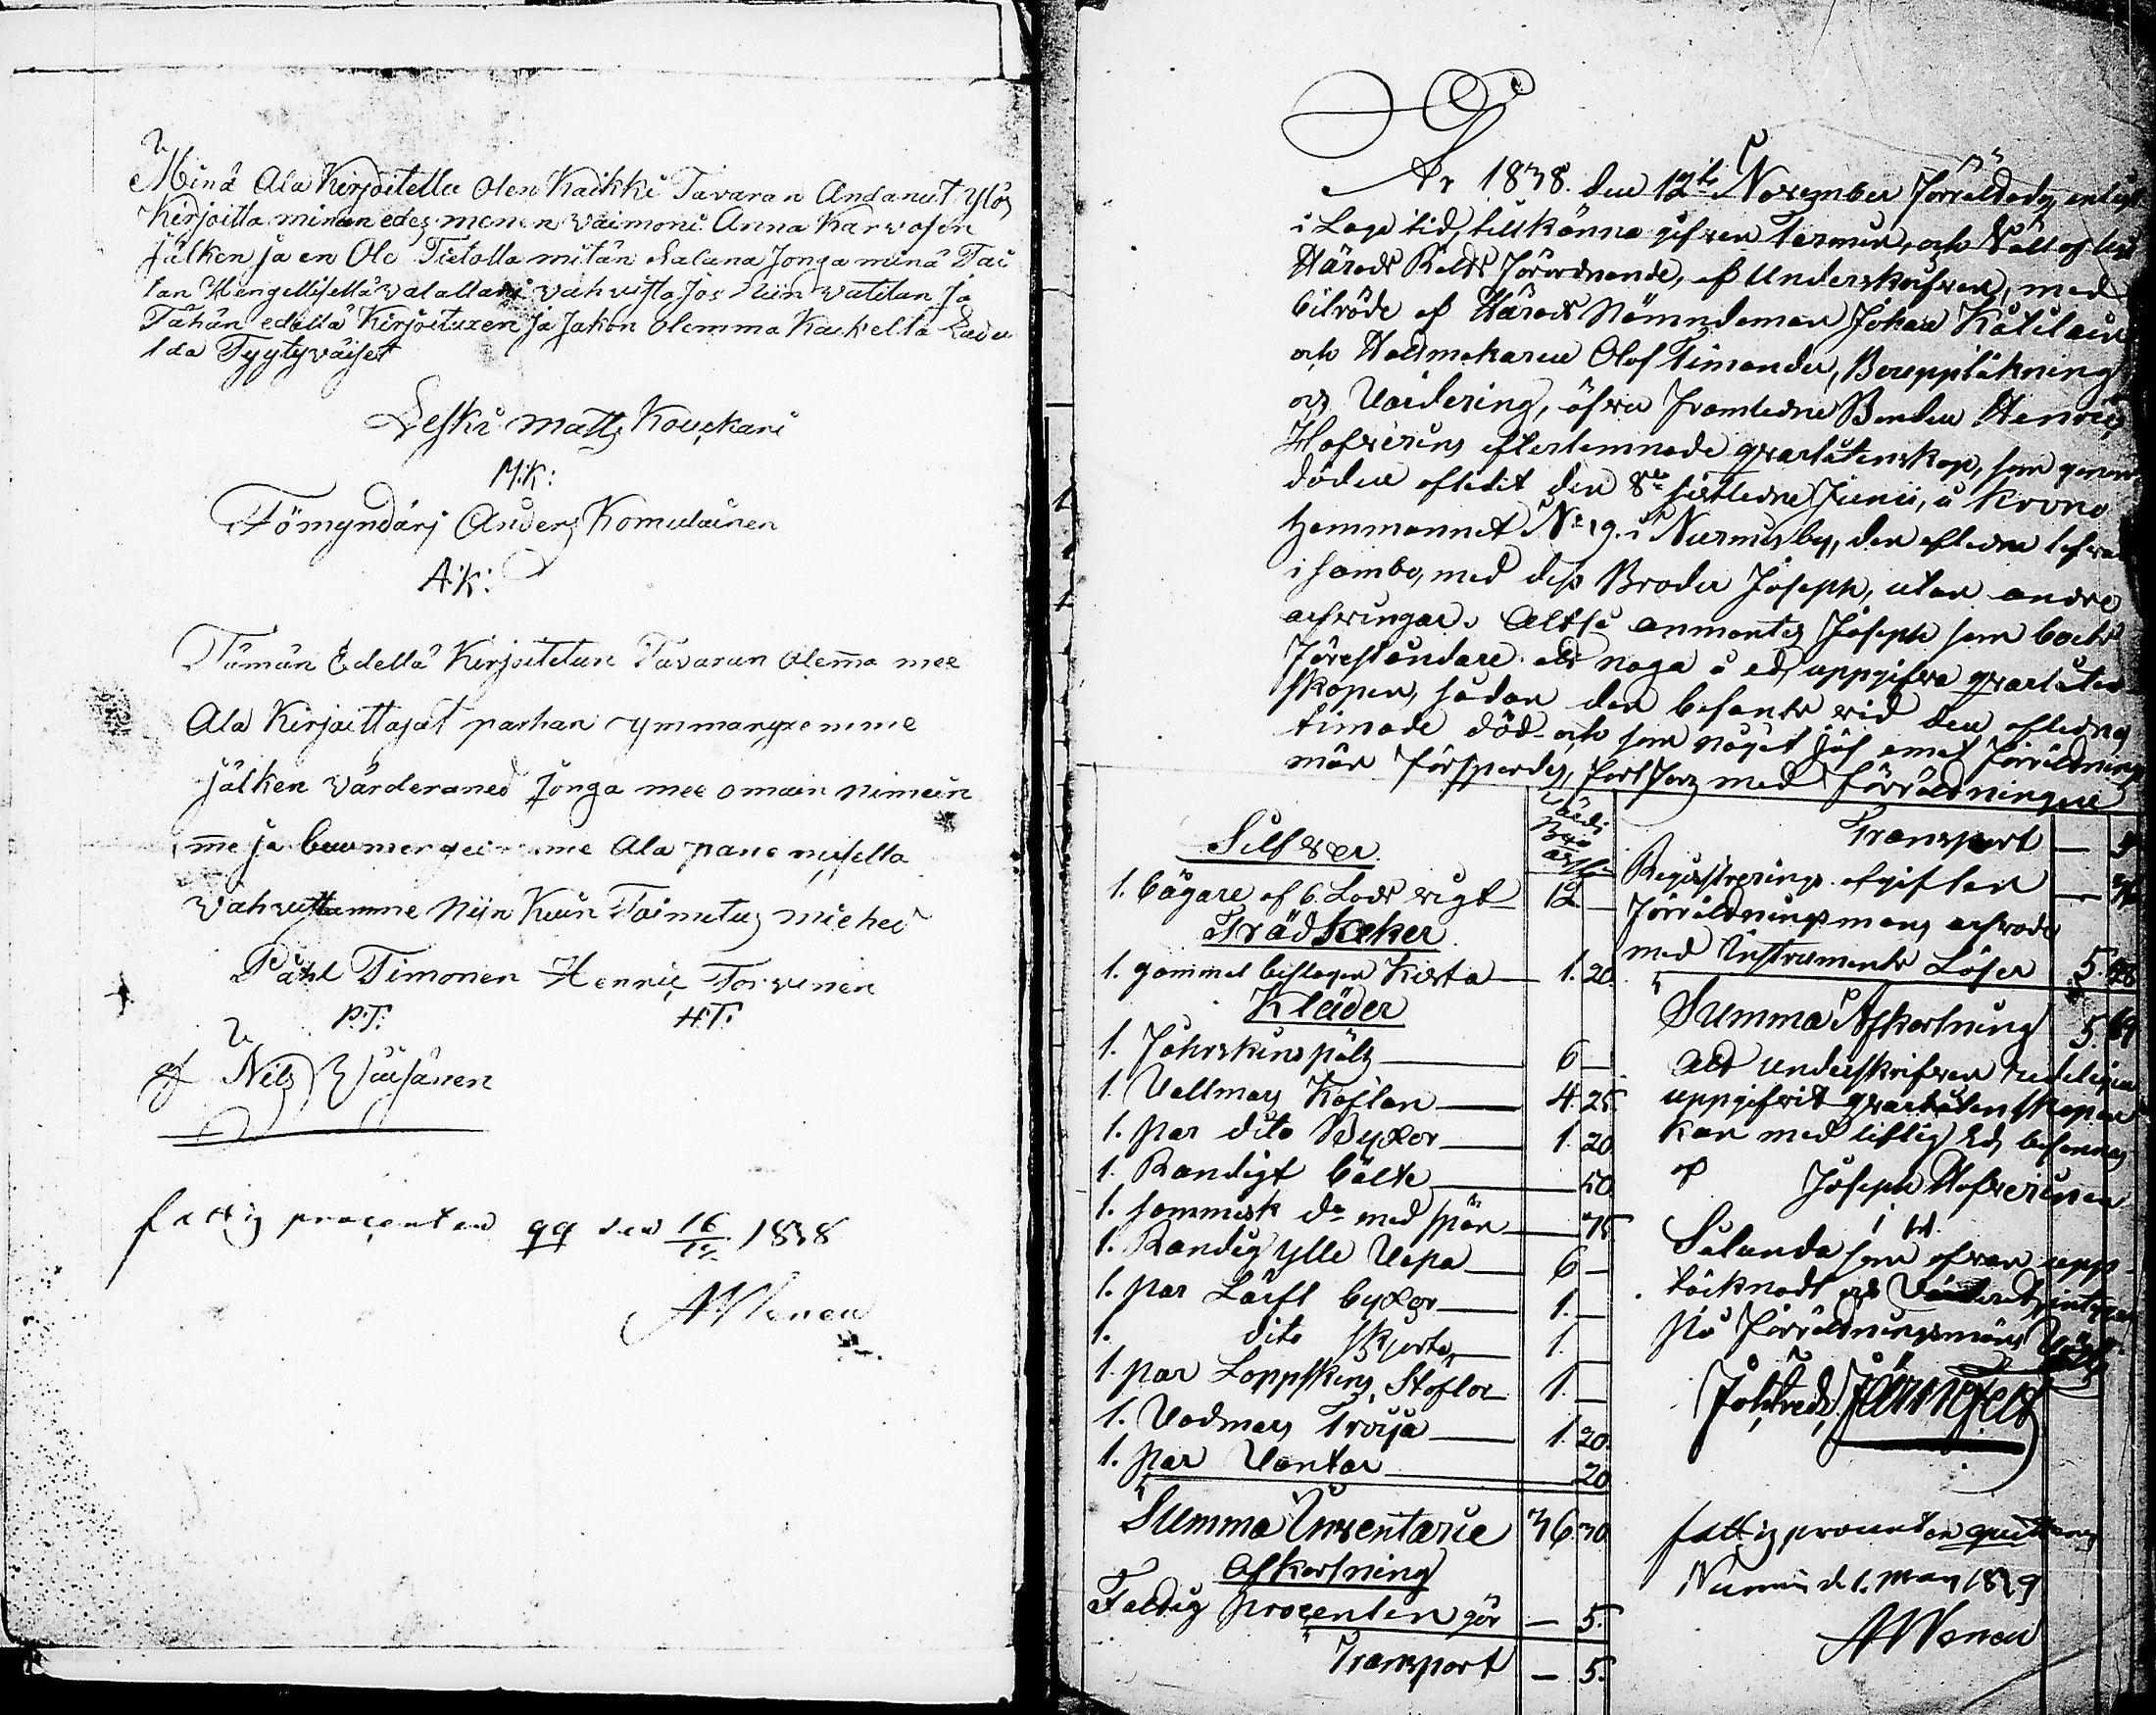 Minä Ala Kirjoitettu olen Kaikki Tavaran Andanut Ylös
Kirjoitta minun edes menen vaimoni Anna Karvosen
Jälken ja en Ole Tietolla mitän salana Jonga minä Tai
tan Hengellisellä valallani vahvista Jos Niin vatitan Ja
Tähän edellä Kirjoituxen Ja Jakon olemma Kaikelta
Tyytyväiset
Leski Matts Kouckari
M:K:
Förmyndarj Anders Komulainen
A:K:
Tämän Edellä Kirjoitetun Tavaran olemma mee
Ala Kirjoittajat parhan ymmaryxemme
Jälken värderaned Jonga mee omain nimein
me ja buumerqeimme Ala pane misella
vahvistamme Niin Kuin Toimitus miehed
Påhl Timonen Henric Torvinen
P:T: H:T:
af Nils Väisänen
fattig procenten qq den 16/12 1838
AWenen
År 1838 den 12te November förrättades, enligt
i Laga tid tillkänna gifven Termin, och Väll.
Härads Rätts förordnande, af Underskrifven, med
biträde af Härads Nämndeman Johan Kätilain
och Hattmakaren Olof Timander, Boupptäkning
och Värdering, öfver framledne Bonden Henric
Hofrerins efterlemnade qvarlåtenskap, som genom
döden aflidit den 8de sistledne Junii, å Krono
hemmannet No 19 i Nurmisby, den afledne lefvat
i sambo, med dess Broder Joseph, utan andre
arfvingar. Altså anmantes Joseph som boets
föreståndare att noga å ed, uppgifva qvarlåten
skapen, sådan den befants vid den aflednes
timade död och som något jäf emot förrättnings
män försportes, fortfors med förrättningen
Silfver
1. bägare af 6. Lods vigt 12 —
Trädsaker
1. gammal beslagen Kista 1. 20.
Kläder
1. Fåhrskinspäls 6 —
1. Vallmans Kaftan 4. 25.
1. par dito Byxor 1. 20
1. Randigt bälte 50
1. sammask do med spän 75
1. Randig ylle Vepa 6 —
1. par Lärft byxor 1. —
1. dito skjorta 1. —
1. par Loppskins Stöflor 1. —
1. Vadmans Tröija 1. 20.
1. par Vantar 20
Summa Inventarie 36. 30.
Afkortning
Fattig procenten gör — 5.
Transport — 5.
Transport — 5
Registrerings afgiften —
förrättningsmans arfvode
med Instruments Lösen 5. 48
Summa Afkortning 5 64
Att underskrifven redeligen
uppgifvit qvarlåtenskapen
kan med liflig Ed, besannas
af Joseph Hofverinen
I H
Salunda som ofvan upp-
täcknadt och Värderat, intygas
På förrättningsmäns Vägn.
Joh: Fredr: Järnefelt
fattig procenten quitteras
Nurmis d 1. May 1839
AWenen